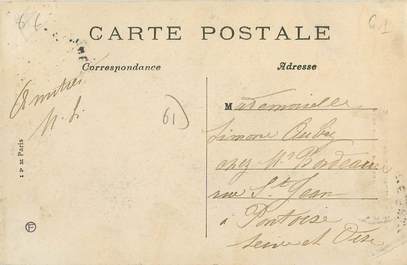 66
61
CARTE POSTALE
Correspondance
Adresse
Amitiés
61)
Mademoiselle
Simone Aubry
chez Mr Bordeaux
rue St Jean
à Pontoise
Seine et Oise
I P M Paris